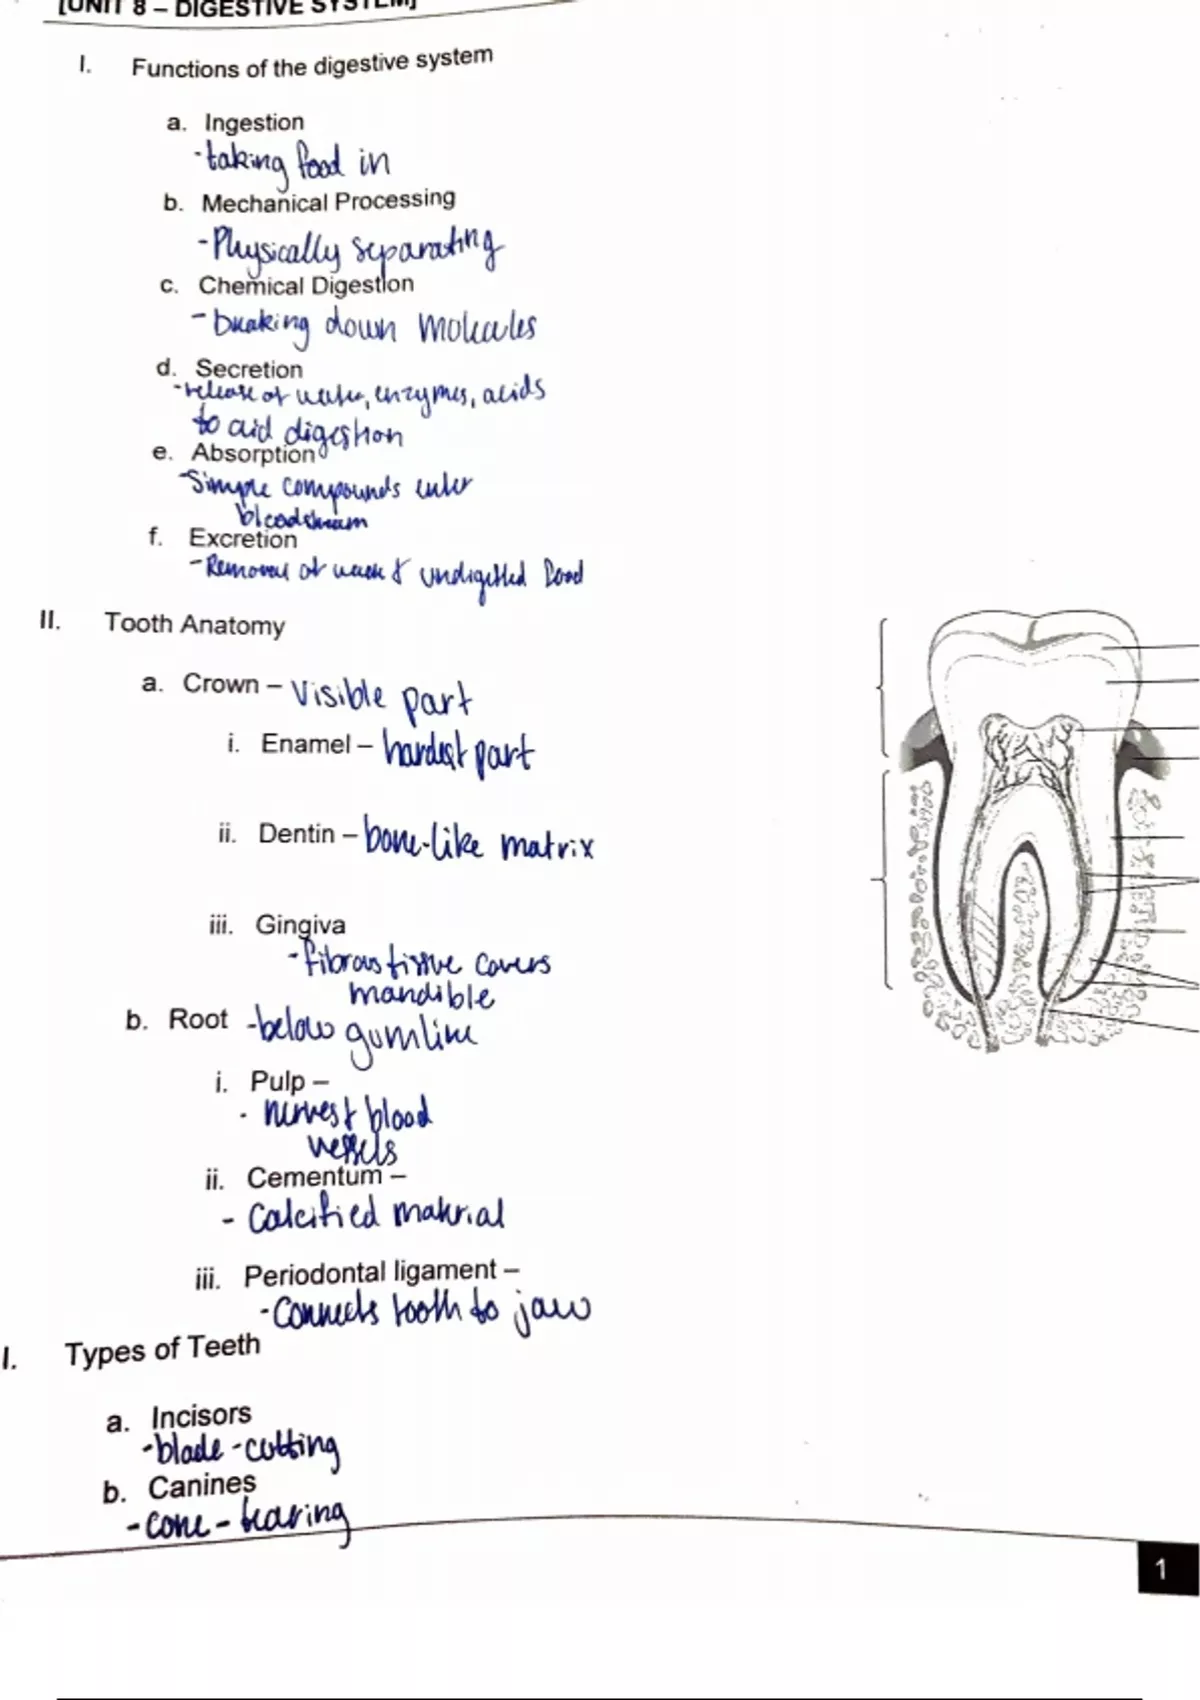 [UNIT 8 – DIGESTIVE SYSTEM]
I. Functions of the digestive system
a. Ingestion
- taking food in
b. Mechanical Processing
- Physically separating
c. Chemical Digestion
- breaking down molecules
d. Secretion
- release of water, enzymes, acids
to aid digestion
e. Absorption
- Simple compounds enter
bloodstream
f. Excretion
- Removal of waste & undigested food
II. Tooth Anatomy
a. Crown – Visible part
i. Enamel – hardest part
ii. Dentin – bone-like matrix
iii. Gingiva
- fibrous tissue covers
mandible
b. Root - below gumline
i. Pulp –
- nerves & blood
vessels
ii. Cementum –
- Calcified material
iii. Periodontal ligament –
- Connects tooth to jaw
I. Types of Teeth
a. Incisors
- blade - cutting
b. Canines
- cone - tearing
1